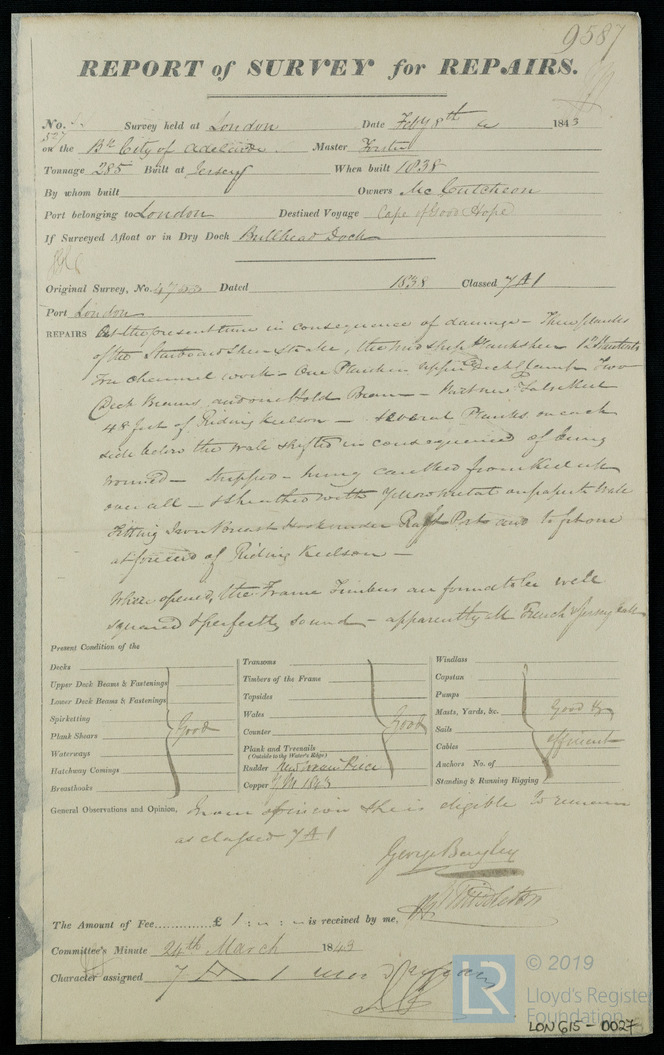 9587
REPORT of SURVEY for REPAIRS.
No. 527 Survey held at London Date Feby 8th 1843
on the Bk City of Adelaide Master Foster
Tonnage 285 Built at Jersey When built 1838
By whom built Owners McCutcheon
Port belonging to London Destined Voyage Cape of Good Hope
If Surveyed Afloat or in Dry Dock Bullhead Dock
Original Survey, No. Dated 1838 Classed 7A1
Port London
REPAIRS At the present time in consequence of damage - Three planks
of the Starboard Sheer Strake, the midships Planksheer 12 Stantients
For channel work - One Plank in upper Deck Clamp Two
Deck Beams, and one Hold Beam - Partner False Keel
48 feet of Riding Keelson - Several Planks on each
side below the wale shifted in consequence of being
wormed - Stripped - hung caulked from Keel up
over all - & sheathed with Yellow metal on paper to Wale
Fitting Iron Breast Hook under Raft Port and to
at fore end of Riding Keelson -
When opened, the Frame Timbers are found to be well
squared & perfectly sound - apparently all French & Jersey oak
Present Condition of the
Decks
Upper Deck Beams & Fastenings
Lower Deck Beams & Fastenings
Spirketting
Plank Shears Good
Waterways
Hatchway Comings
Breasthooks
Transoms
Timbers of the Frame
Topsides
Wales
Counter Good
Plank and Treenails
(Outside to the Water's Edge)
Rudder New main Piece
Copper Y.M. 1843
Windlass
Capstan
Pumps
Masts, Yards, &c. Good &
Sails
Cables efficient
Anchors No. of
Standing & Running Rigging
General Observations and Opinion, In our opinion she is eligible to remain
as classed 7A1
George Bayley
Middleton
The Amount of Fee............£ 1 : " : " is received by me,
Committee's Minute 24th March 1843
Character assigned 7 A 1
LR
© 2019
Lloyd's Register
Foundation
LON 615 - 0027